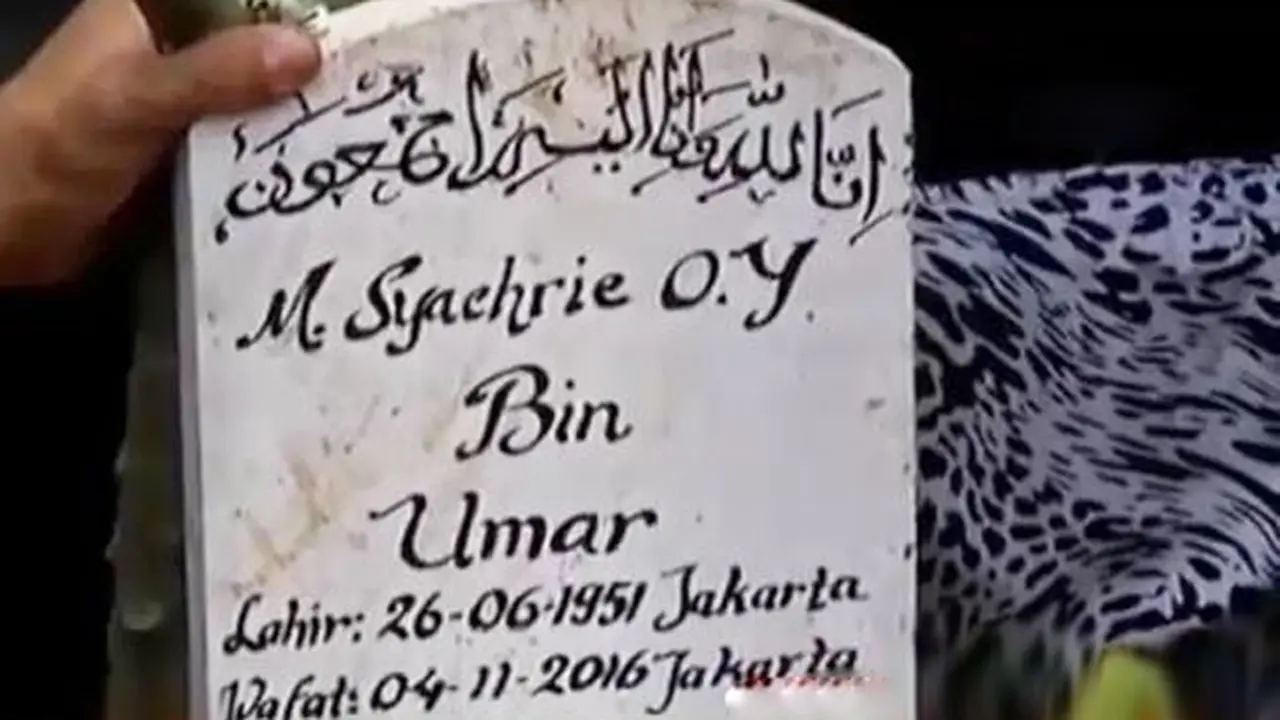 انا لله وانا اليه راجعون
M. Syachrie O.Y
Bin
Umar
Lahir: 26-06-1951 Jakarta
Wafat: 04-11-2016 Jakarta